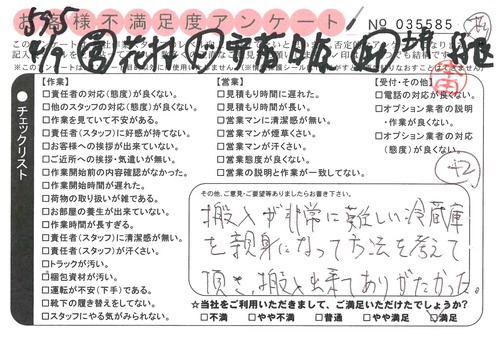 お客様不満足度アンケート
No 035585
チェックリスト
【作業】
□責任者の対応(態度)が良くない。
□他のスタッフの対応(態度)が良くない。
□作業を見ていて不安がある。
□責任者(スタッフ)に好感が持てない。
□お客様への挨拶が出来ていない。
□ご近所への挨拶・気遣いが無い。
□作業開始前の内容確認がなかった。
□作業開始時間が遅れた。
□荷物の取り扱いが雑である。
□お部屋の養生が出来ていない。
□作業時間が長すぎる。
□責任者(スタッフ)に清潔感が無い。
□責任者(スタッフ)が汗くさい。
□トラックが汚い。
□梱包資材が汚い。
□運転が不安(下手)である。
□靴下の履き替えをしてない。
□スタッフにやる気がみられない。
【営業】
□見積もり時間に遅れた。
□見積もり時間が長い。
□営業マンに清潔感が無い。
□営業マンが煙草くさい。
□営業マンが汗くさい。
□営業態度が良くない。
□営業の説明と作業が一致してない。
【受付・その他】
□電話の対応が良くない。
□オプション業者の説明・作業が良くない。
□オプション業者の対応(態度)が良くない。
その他、ご意見・ご要望等ありましたらお書き下さい。
搬入が非常に難しい冷蔵庫
を親身になって方法を考えて
頂き、搬入出来てありがたかった。
☆当社をご利用いただきまして、ご満足いただけたでしょうか?
□不満 □やや不満 □普通 □やや満足 □満足